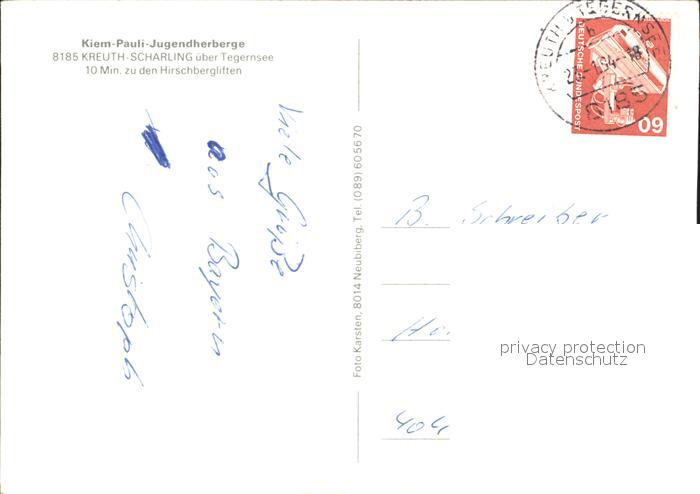 Kiem-Pauli-Jugendherberge
8185 KREUTH-SCHARLING über Tegernsee
10 Min. zu den Hirschbergliften
Viele Grüße
aus Bayern
Christoph
Foto Karsten, 8014 Neubiberg, Tel. (089) 605670
KREUTH TEGERNSEE
b
8185
DEUTSCHE BUNDESPOST
60
B. Schreiber
404
privacy protection
Datenschutz